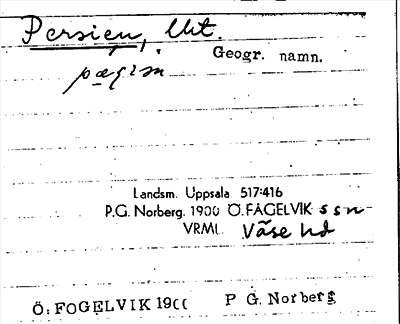 Persien, Ukt.
Geogr. namn.
pægin
Landsm. Uppsala 517:416
P.G. Norberg. 1900 Ö. FÅGELVIK ssn
VRML. Väse hd
Ö: FOGELVIK 19 P G. Norberg